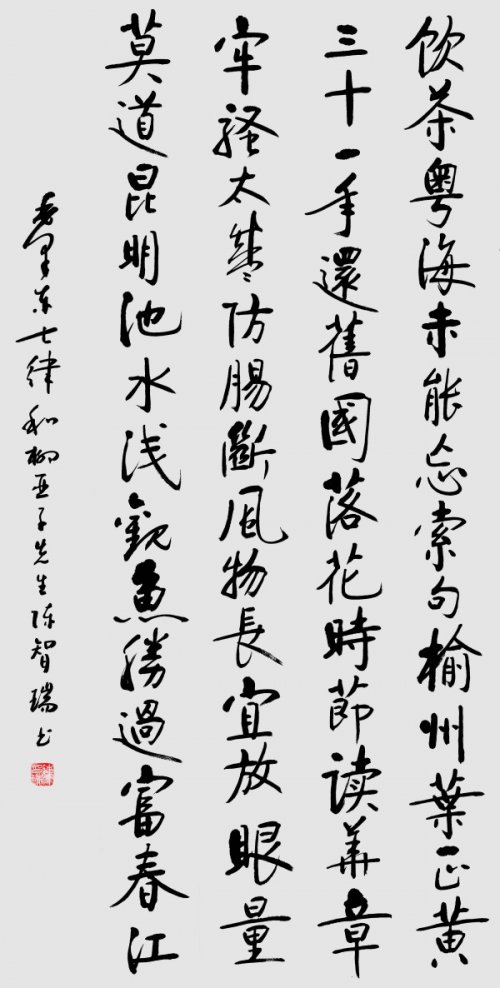 饮茶粤海未能忘索句榆州葉正黄
三十一年還舊國落花時節读華章
牢騷太盛防腸斷风物長宜放眼量
莫道昆明池水浅觀魚勝過富春江
毛泽东七律和柳亚子先生陈智瑞书